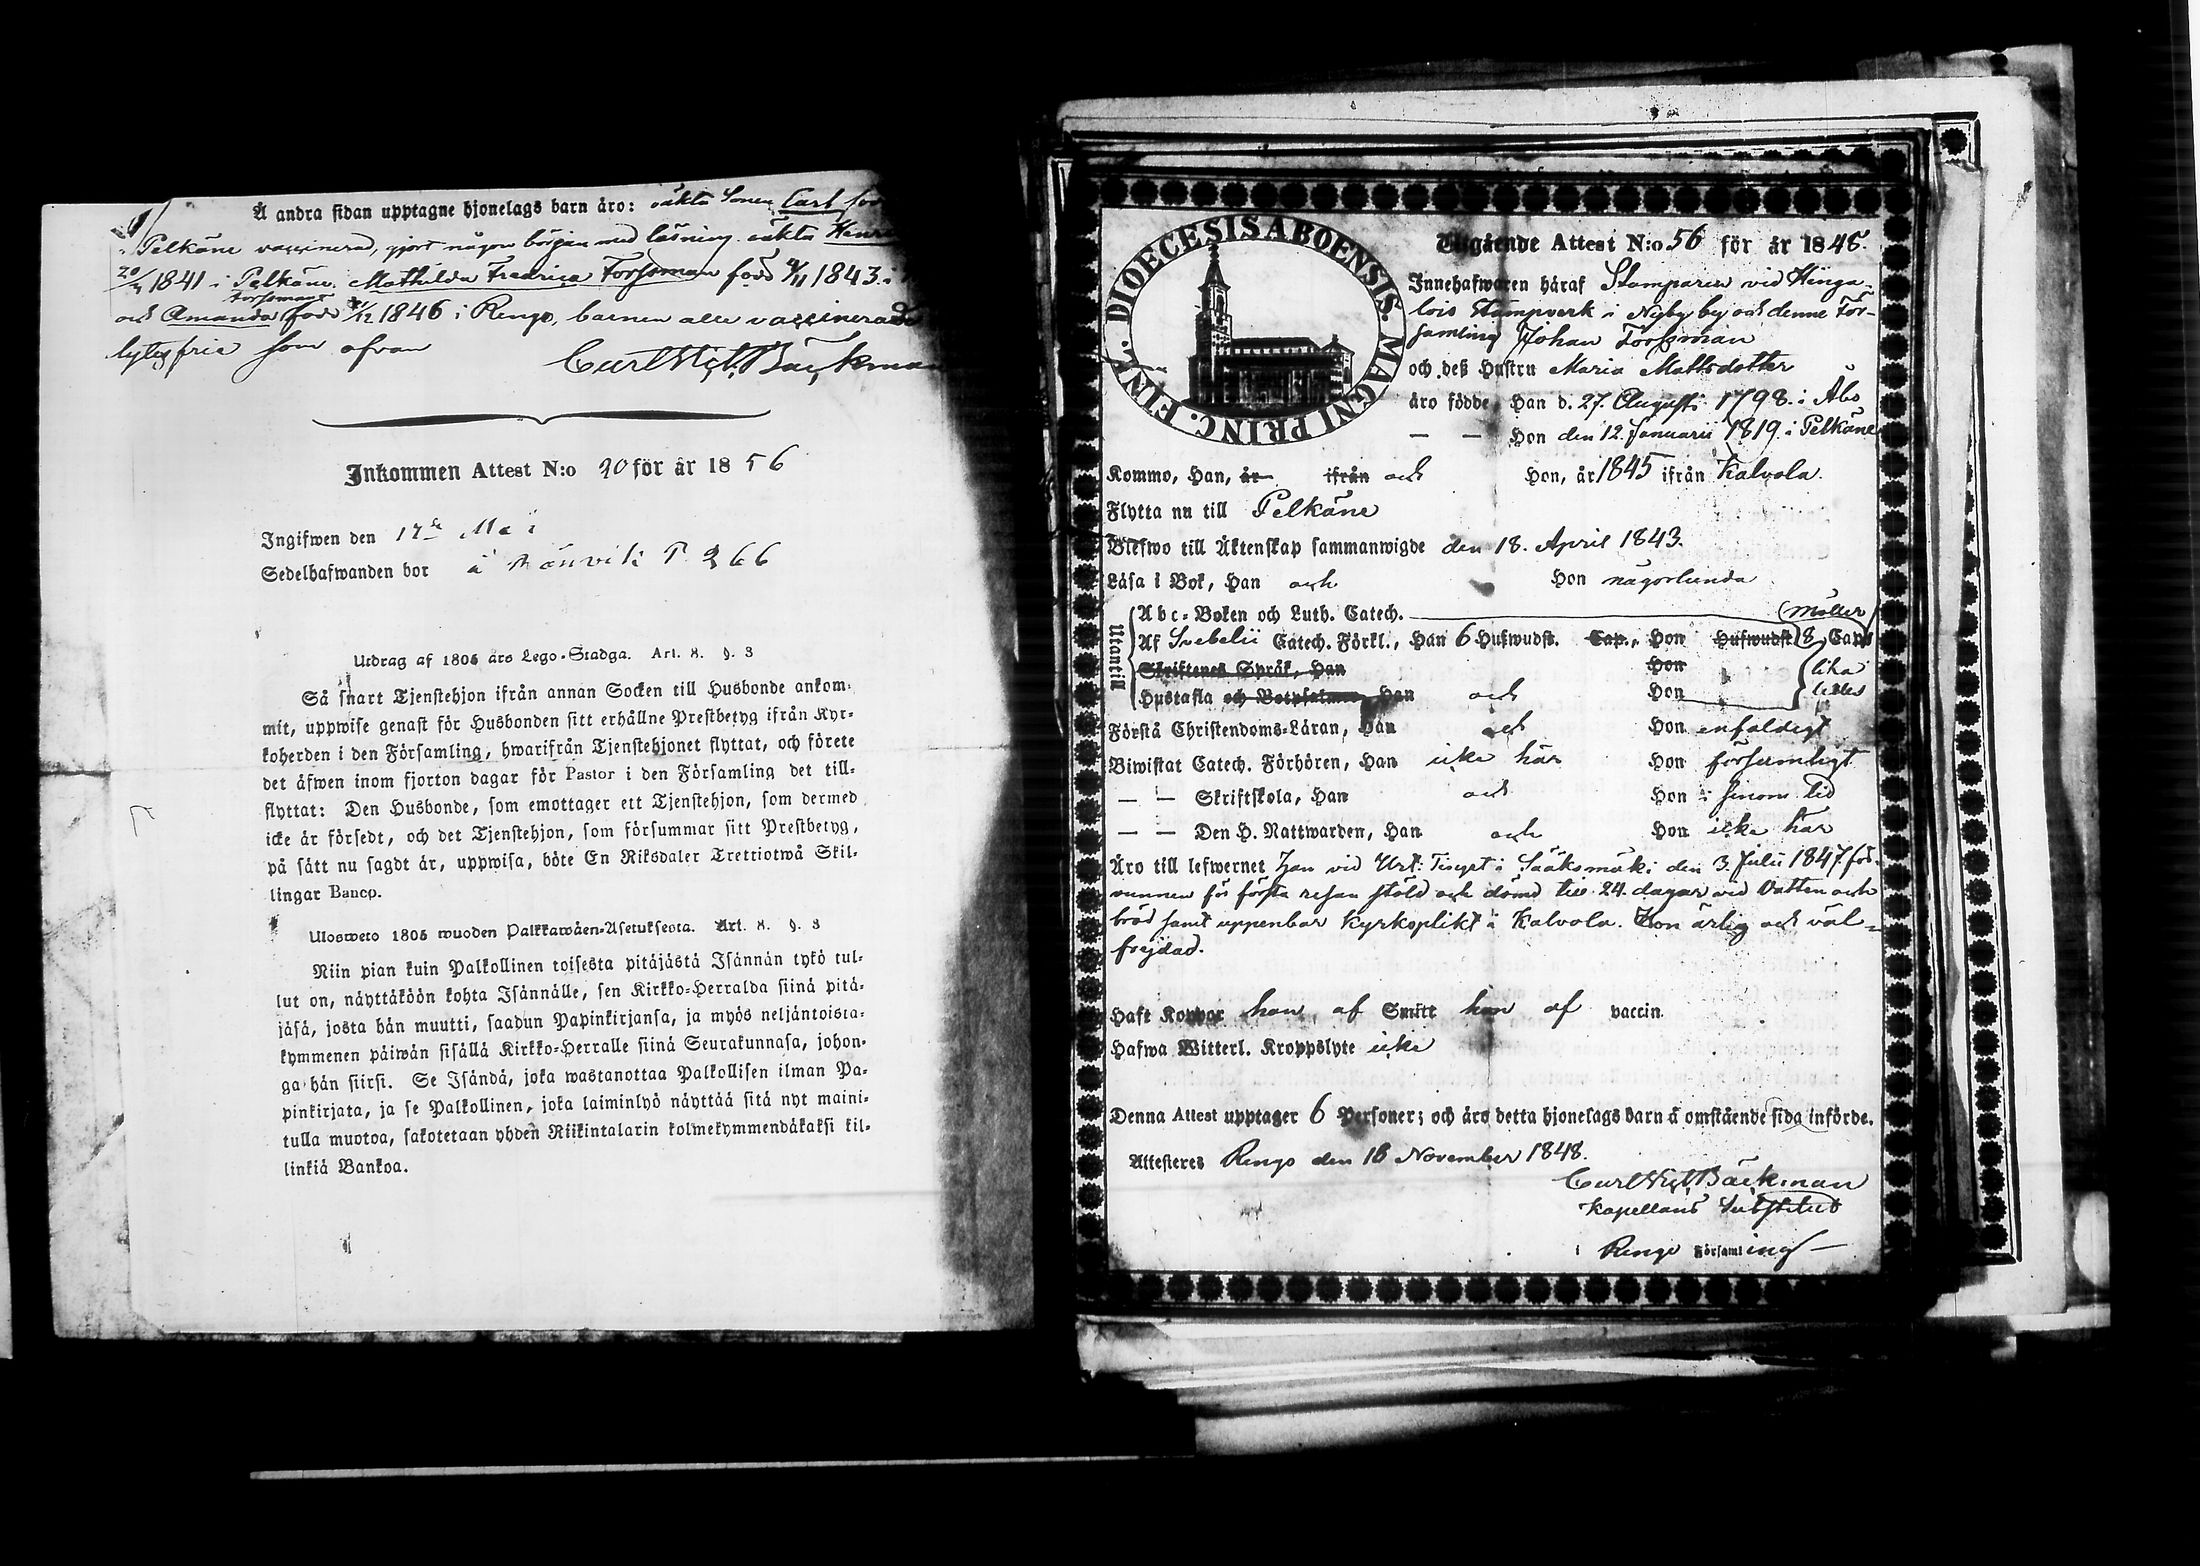 Å andra sidan upptagne hjonelags barn äro: oäkta Sonen Carl
Pelkäne vaccinerad, gjort någon början med läsning. oäkta Henri
20/ 1841 i Pelkäne. Mathilda Fredrica Forssman född /11 1843. i
Forssman
och Amanda född /12 1846 i Rengo, barnen alla vaccinerade
lytesfria som ofvan
Carl Wil. Bäckman
Inkommen Attest N:o 20 för år 1856
Ingifwen den 17de Maj
Sedelhafwanden bor å P 266
Utdrag af 1805 års Lego-Stadga. Art. 8. §. 3
Så snart Tjenstehjon ifrån annan Socken till Husbonde ankom-
mit, uppwise genast för Husbonden sitt erhållne Prestbetyg ifrån Kyr-
koherden i den Församling, hwarifrån Tjenstehjonet flyttat, och förete
det äfwen inom fjorton dagar för Pastor i den Församling det till-
flyttat: Den Husbonde, som emottager ett Tjenstehjon, som dermed
icke är försedt, och det Tjenstehjon, som försummar sitt Prestbetyg,
på sätt nu sagdt är, uppwisa, böte En Riksdaler Trettiotwå Skil-
lingar Banco.
Ulosweto 1805 wuoden Palkkawäen-Asetuksesta. Art. 8. §. 3
Niin pian kuin Palkollinen toisesta pitäjästä Isännän tykö tul-
lut on, näyttäköön kohta Isännälle, sen Kirkko-Herralda siinä pitä-
jäsä, josta hän muutti, saadun Papinkirjansa, ja myös neljäntoista-
kymmenen päiwän sisällä Kirkko-Herralle siinä Seurakunnasa, johon-
ga hän siirsi. Se Isändä, joka wastanottaa Palkollisen ilman Pa-
pinkirjata, ja se Palkollinen, joka laiminlyö näyttää sitä nyt maini-
tulla muotoa, sakotetaan yhden Riikintalarin kolmekymmendäkaksi kil-
linkiä Bankoa.
DIOECESIS ABOENSIS. MAGNI PRINC. FINL.
Utgående Attest N:o 56 för år 1848.
Innehafwaren häraf Stamparen vid Hinga-
lois Stampverk i Nyby by och denne För-
samling Johan Forssman
och deß Hustru Maria Mattsdotter
äro födde, Han d. 27. Augusti 1798. i Åbo
— — Hon den 12. Januarii 1819. i Pelkäne
Kommo, Han, år ifrån och Hon, år 1845 ifrån Kalvola.
Flytta nu till Pelkäne
Blefwo till Äktenskap sammanwigde den 18. April 1843.
Läsa i Bok, Han och Hon någorlunda
Utantill
Abc-Boken och Luth. Catech.
Af Svebelii Catech. Förkl., Han 6 Hufwudst. Cap., Hon Hufwudst 8 Cap
Skriftenes Språk, Han Hon lika
Hustafla och Botpsalmer, Han och Hon ledes
Förstå Christendoms-Läran, Han och Hon enfaldigt
Biwistat Catech. Förhören, Han icke här Hon försumligt
— — Skriftskola, Han och Hon i sinom tid
— — Den H. Nattwarden, Han och Hon icke här
Äro till lefwernet han vid Urt: Tinget i Sääksmäki den 3. Julii 1847. för-
vunnen för första resan stöld och dömd till 24. dagar vid Vatten och
bröd samt uppenbar Kyrkoplikt i Kalvola. Hon ärlig och väl-
frejdad.
Haft Koppor han af Smitt hon af vaccin.
Hafwa Witterl. Kroppslyte icke
Denna Attest upptager 6 Personer; och äro detta hjonelags barn å omstående sida införde.
Attesteres Rengo den 18 November 1848.
Carl Wil. Bäckman
Kapellans Substitut
i Rengo Församling